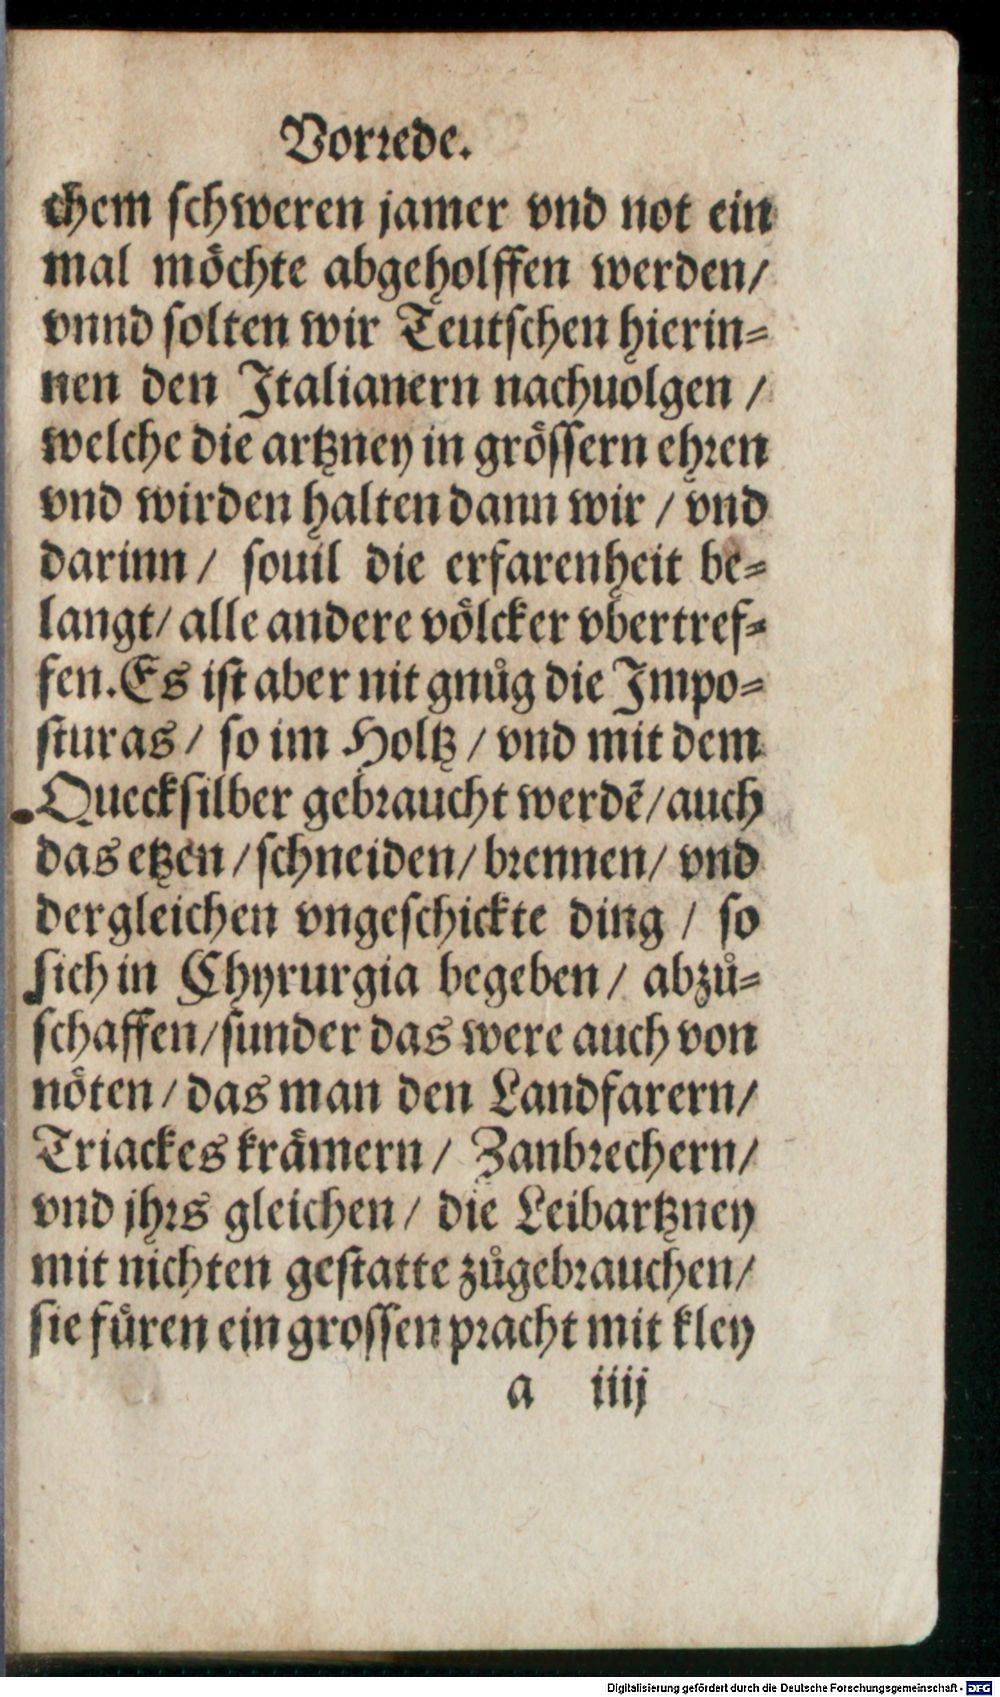 Vorrede.
chem schweren jamer vnd not ein
mal möchte abgeholffen werden/
vnnd solten wir Teutschen hierin=
nen den Italianern nachuolgen /
welche die artzney in grössern ehren
vnd wirden halten dann wir / vnd
darinn / souil die erfarenheit be=
langt/ alle andere völcker vbertref=
fen. Es ist aber nit gnůg die Impo=
sturas / so im Holtz / vnd mit dem
Quecksilber gebraucht werdē/auch
das etzen / schneiden/ brennen/ vnd
dergleichen vngeschickte ding / so
sich in Chyrurgia begeben / abzů=
schaffen/sunder das were auch von
nöten / das man den Landfarern/
Triackes krämern / Zanbrechern/
vnd jhrs gleichen / die Leibartzney
mit nichten gestatte zůgebrauchen/
sie füren ein grossen pracht mit kley
a iiij
Digitalisierung gefördert durch die Deutsche Forschungsgemeinschaft - DFG